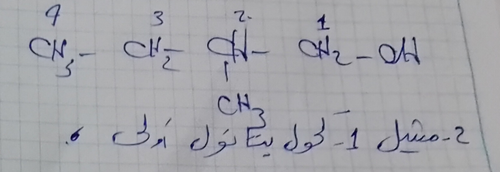 4 3 2 1
CH₃ - CH₂ - CH - CH₂ - OH
CH₃
2-مثيل 1- بيتا نول أولي